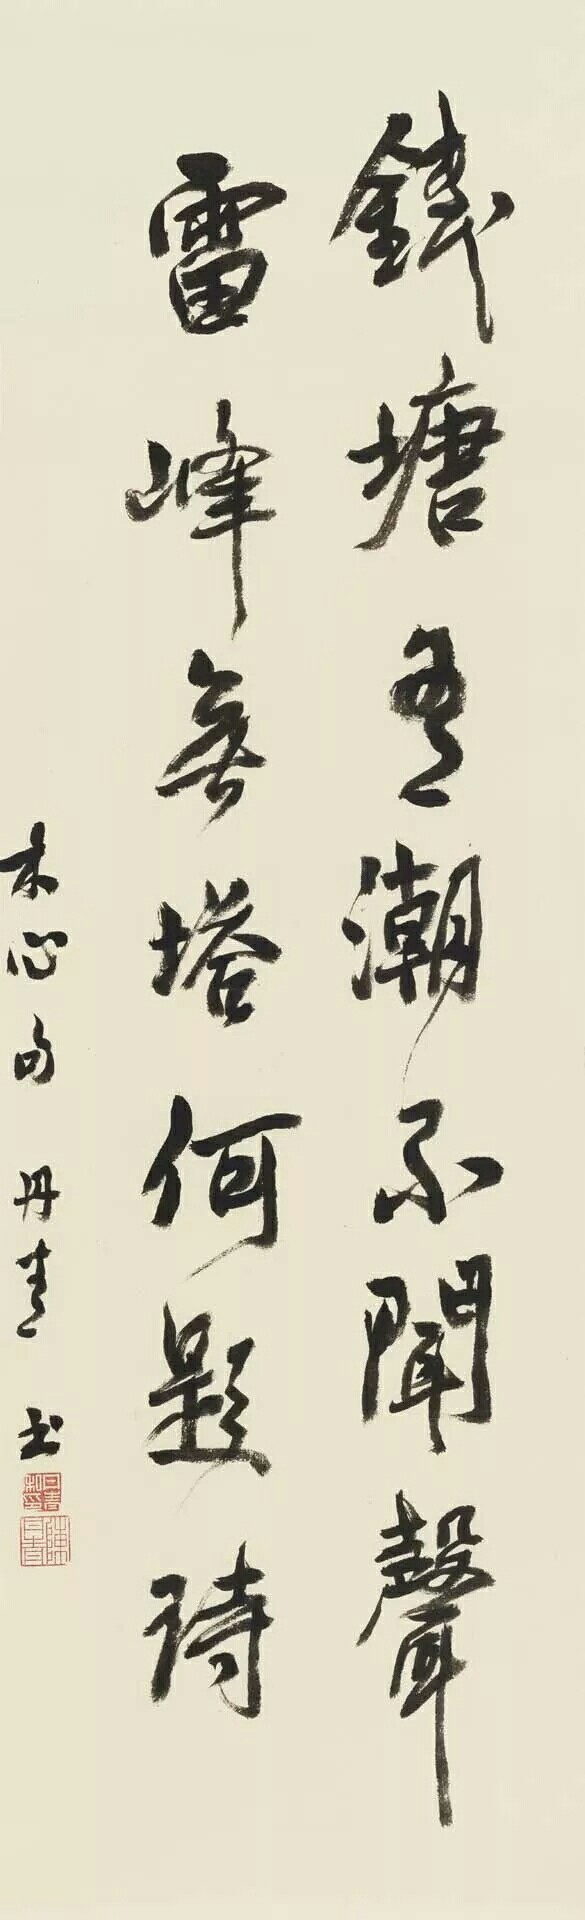 錢塘有潮不聞聲
雷峰無塔何題詩
木心句 丹青書
陳丹青